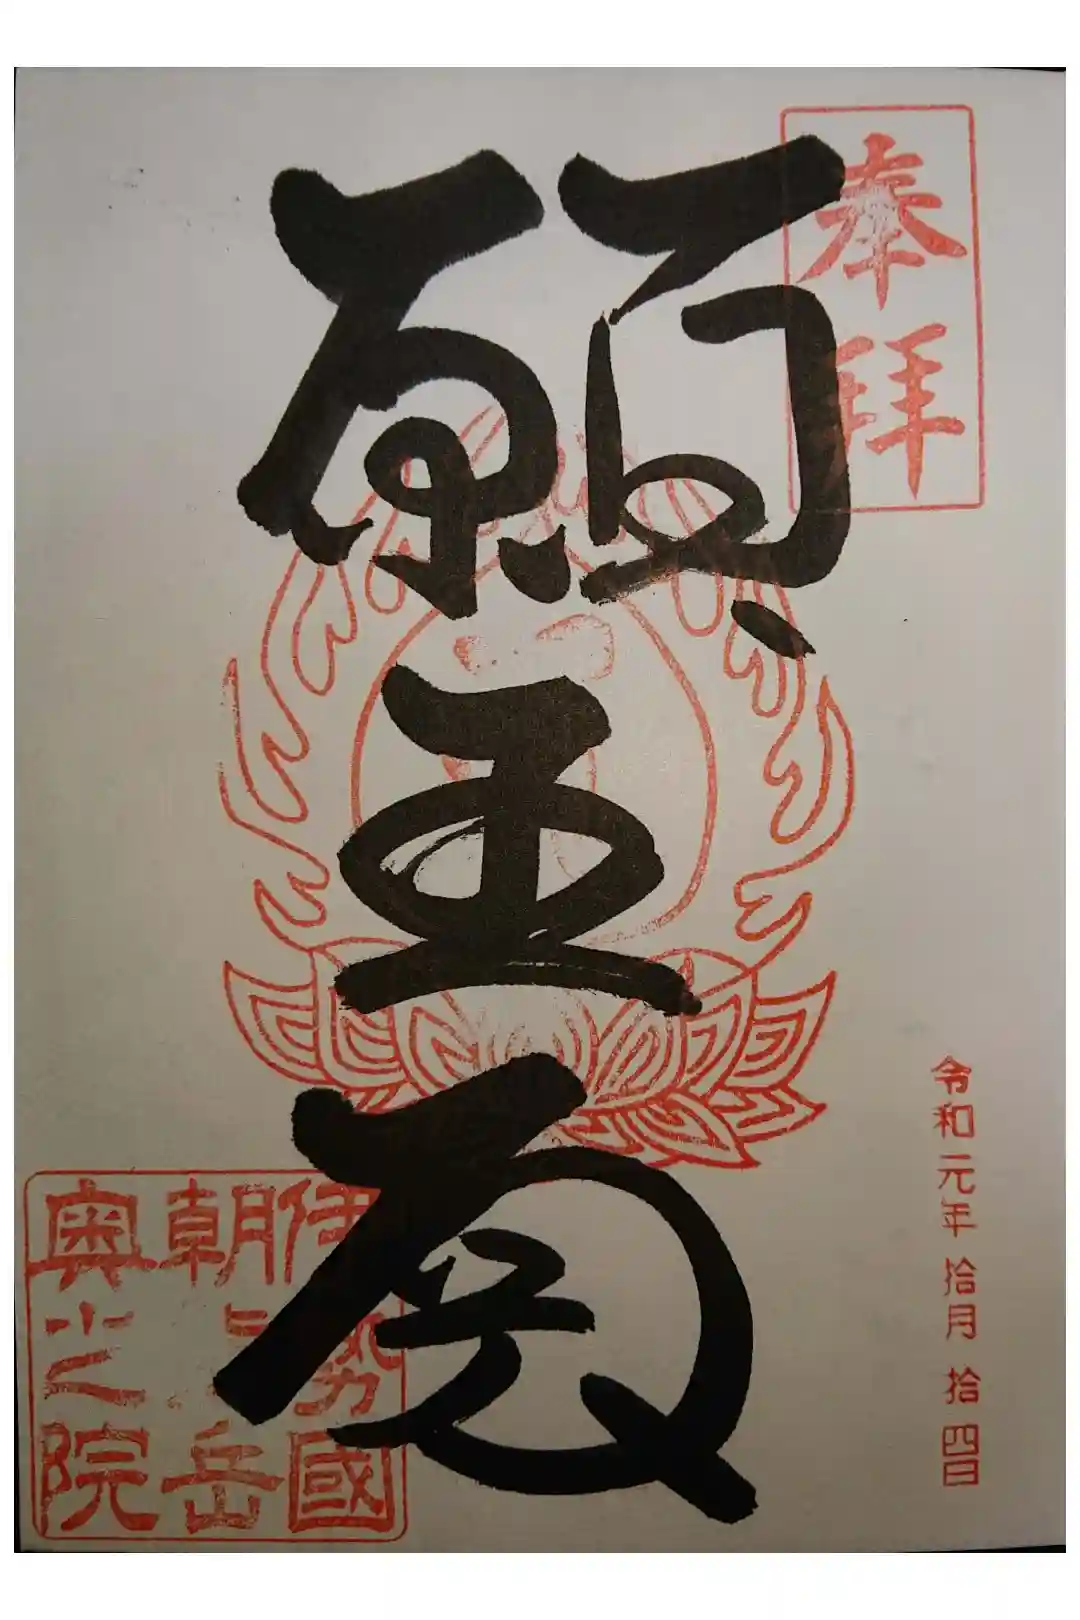 奉拝
願王殿
令和元年拾月拾四日
伊勢國
朝上岳
奥之院